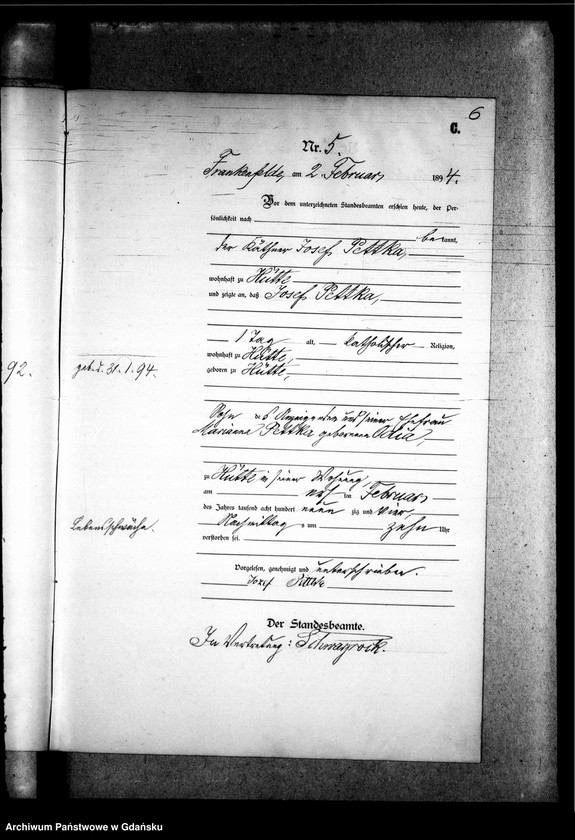 6
C.
Nr. 5.
Frankenfelde, am 2. Februar 1894.
Vor dem unterzeichneten Standesbeamten erschien heute, der Per-
sönlichkeit nach
bekannt,
der Käthner Josef Pettka,
wohnhaft zu Hütte
und zeigte an, daß Josef Pettka,
1 Tag alt, katholischer Religion,
wohnhaft zu Hütte,
92.
gebd. 31.1.94.
geboren zu Hütte,
Sohn des Anzeigenden und seiner Ehefrau
Marianna Pettka geborenen
zu Hütte in seiner Wohnung,
am ersten Februar
des Jahres tausend acht hundert neunzig und vier
Lebensschwäche.
Nachmittags um zehn Uhr
verstorben sei.
Vorgelesen, genehmigt und unterschrieben.
Josef
Der Standesbeamte.
In Vertretung: Schmagrock.
Archiwum Państwowe w Gdańsku